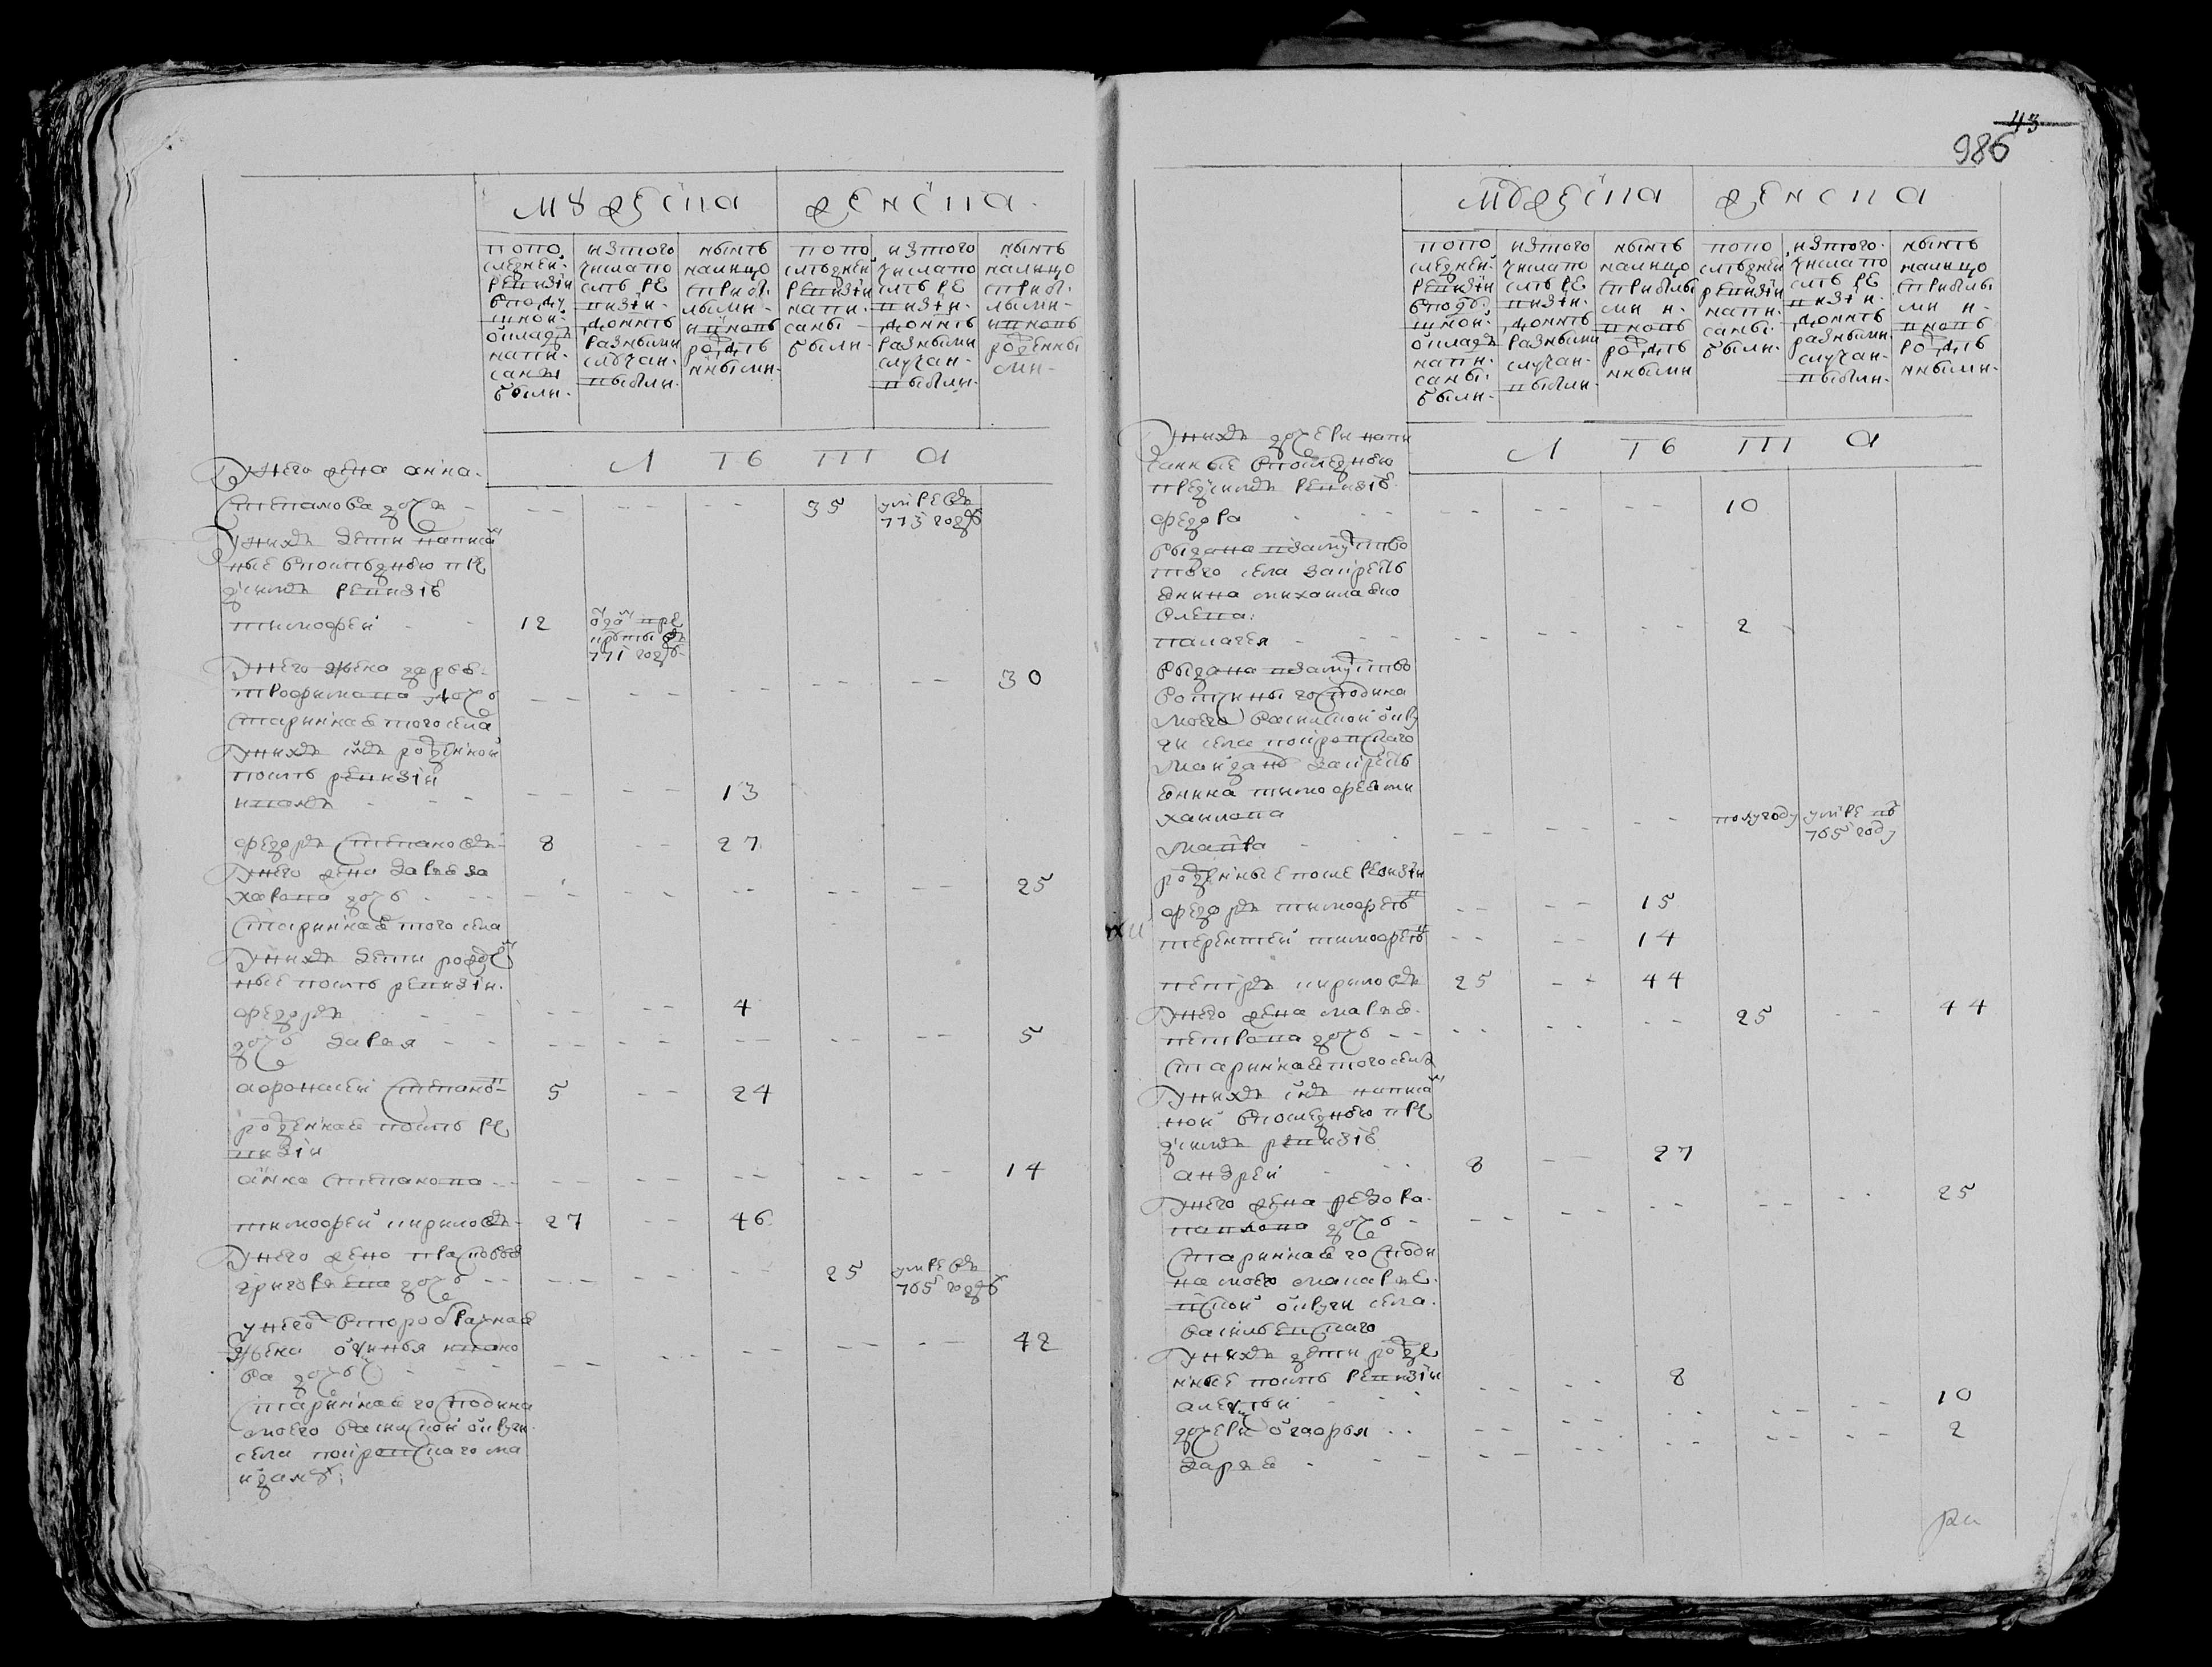 43
986
мȣжеска
женска
попо
следнеи
ревизїи
вподу
шной
окладъ
напи
саны
были
изтого
числапо
слѣ ре
визїи
донынѣ
разными
случаи
выбыли
нынѣ
налицо
сприбы
лыми
ивновь
рожде
нными
попо
слѣднеи
ревизїи
напи
саны
были
изтого
числапо
слѣ ре
визїи
донынѣ
разными
случаи
выбыли
нынѣ
налицо
сприбы
лыми
ивновь
рожденны
ми
Л ѣ т а
Унего жена анна
степанова дочь - - - - - 35 умре въ
773 году
Унихъ дети написан
ные впоследнюю пре
дсимъ ревизїю
тимофей - - 12 отдан в ре
круты въ
771 году
Унего жена дарья
трофимова дочь - - - - - 30
старинная того села
Унихъ сынъ рожденной
послѣ ревизїи
иванъ - - - 13
федоръ степановъ 8 - - 27
Унего жена дарья за
харова дочь - - - - - 25
старинная того села
Унихъ дети рожден
ные послѣ ревизїи
федоръ - - - 4
дочь дарья - - - - - 5
афонасей степановъ 5 - - 24
рожденная послѣ ре
визїи
анна степанова - - - - - 14
тимофей кириловъ 27 - - 46
Унего жена прасковья
григорьева дочь - - - - 25 умре въ
765 году
унего второбрачная
жена офимья ивано
ва дочь - - - - - 42
стариннаяго сподина
моего васильской округи
села покровскаго ма
идана
мȣжеска
женска
попо
следнеи
ревизїи
вподу
шной
окладъ
напи
саны
были
изтого
числапо
слѣ ре
визїи
донынѣ
разными
случаи
выбыли
нынѣ
налицо
сприбылы
ми и
вновь
рожде
нными
попо
слѣдней
ревизїи
напи
саны
были
изтого
числапо
слѣ ре
визїи
донынѣ
разными
случаи
выбыли
нынѣ
налицо
сприбылы
ми и
вновь
рожде
нными
Л ѣ т а
Унихъ дочери напи
санные впоследнюю
предсимъ ревизїю
федора - - - 10
выдана взамужство
того села закресть
янина михаила яко
влева
палагея - - - 2
выдана взамужство
вотчины господина
моего васильской окру
ги села покровскаго
майдана закресть
янина тимофея ми
хаилова
мавра - - - полугоду умре въ
765 году
рожденные после ревизїи
федоръ тимофеевъ - - 15
терентей тимофеевъ - - 14
петръ кириловъ 25 - - 44
Унего жена марья
петрова дочь - - - 25 - - 44
стариннаятого села
Унихъ сынъ написан
ной впоследнюю пре
дсимъ ревизїю
андрей 8 - - 27
Унего жена федора
павлова дочь - - - - - 25
стариннаяго споди
на моего макарье
вской округи села
васильевскаго
Унихъ дети рожде
нные послѣ ревизїи
алексѣй - - 8
дочери офафья - - - - - 10
дарья - - - - - 2